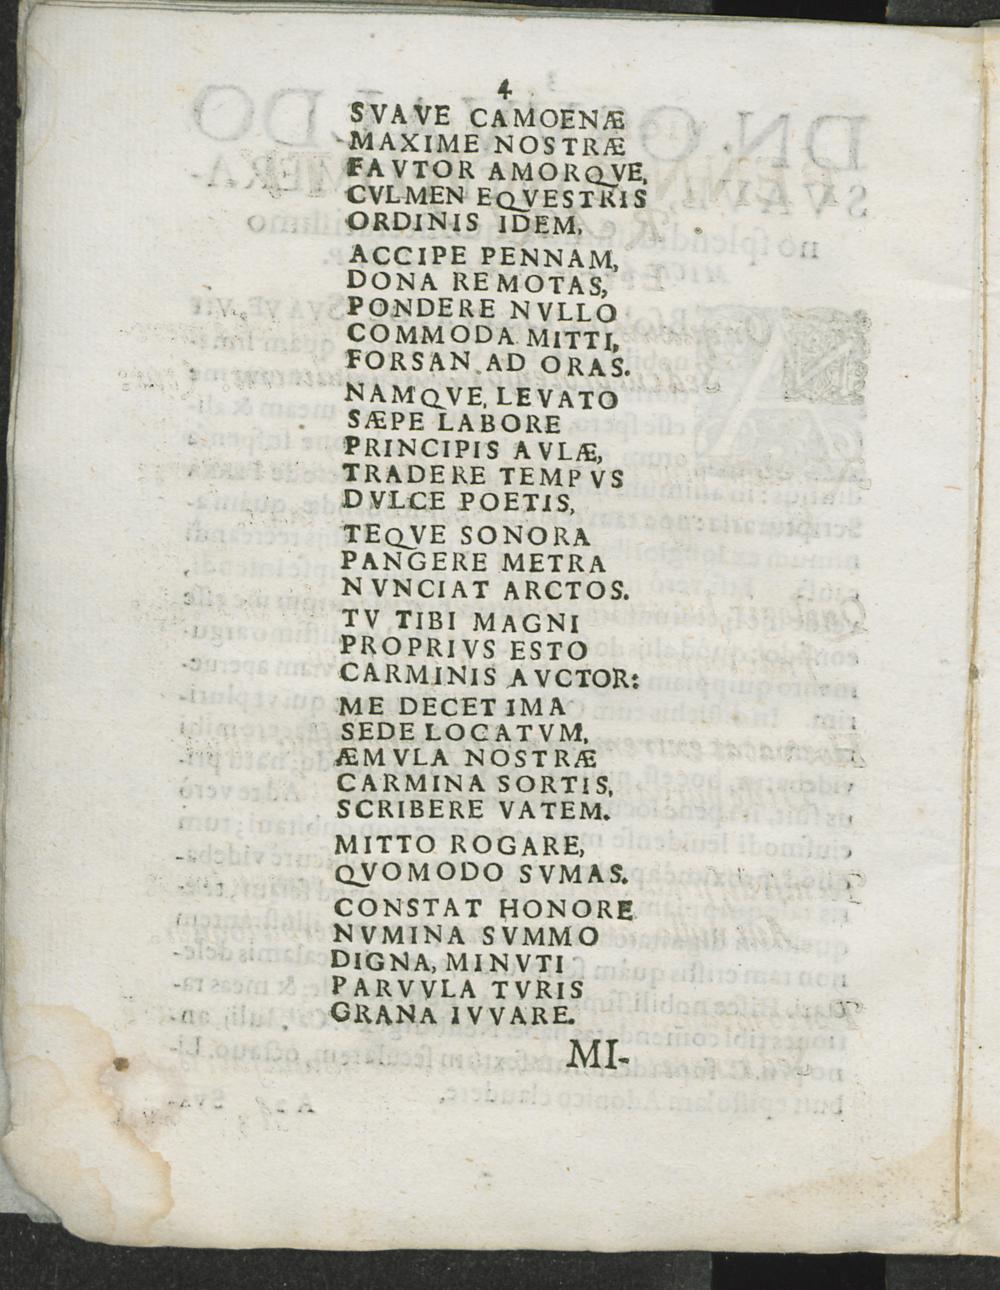 4
SVAVE CAMOENÆ
MAXIME NOSTRÆ
FAVTOR AMORQVE,
CVLMEN EQVESTRIS
ORDINIS IDEM,
ACCIPE PENNAM,
DONA REMOTAS,
PONDERE NVLLO
COMMODA MITTI,
FORSAN AD ORAS.
NAMQVE, LEVATO
SÆPE LABORE
PRINCIPIS AVLÆ,
TRADERE TEMPVS
DVLCE POETIS,
TEQVE SONORA
PANGERE METRA
NVNCIAT ARCTOS.
TV TIBI MAGNI
PROPRIVS ESTO
CARMINIS AVCTOR:
ME DECET IMA
SEDE LOCATVM,
ÆMVLA NOSTRÆ
CARMINA SORTIS,
SCRIBERE VATEM.
MITTO ROGARE,
QVOMODO SVMAS.
CONSTAT HONORE
NVMINA SVMMO
DIGNA, MINVTI
PARVVLA TVRIS
GRANA IVVARE.
MI-